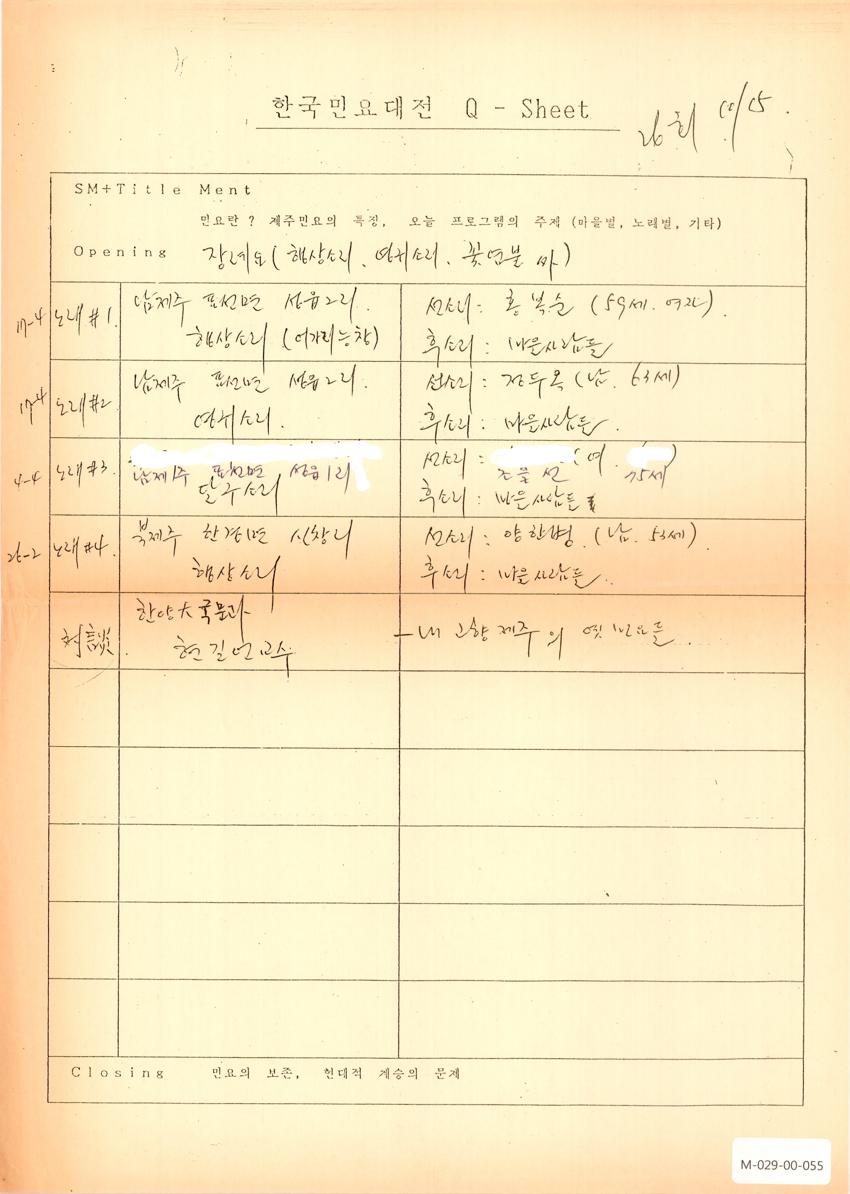 한국민요대전 Q - Sheet
26회 10/15.
SM+Title Ment
민요란? 제주민요의 특징, 오늘 프로그램의 주제 (마을별, 노래별, 기타)
Opening 장례요 (행상소리, 영귀소리, 꽃염불
17-4 노래 #1. 남제주 표선면 성읍2리. 선소리: 홍복순 (59세. 여자).
행상소리 (어가리능창) 후소리: 마을사람들
17-4 노래 #2 남제주 표선면 성읍2리. 선소리: 정두옥 (남. 63세)
영귀소리. 후소리: 마을사람들.
4-4 노래 #3 남제주 표선면 성읍1리 선소리: 조을선 (여. 75세)
달구소리 후소리: 마을사람들
26-2 노래 #4. 북제주 한경면 신창리 선소리: 양한병. (남. 53세).
행상소리 후소리: 마을사람들.
対談. 한양大 국문과 - 내 고향 제주의 옛 민요들.
현길언 교수
Closing 민요의 보존, 현대적 계승의 문제
M-029-00-055